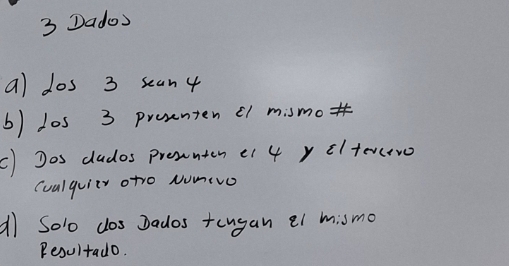 3 Dados
a) Los 3 sean 4
b) Los 3 presenten El mismo #
c) Dos dados presenten el 4 y El tercero
cualquier otro Numero
d) Solo dos Dados tengan El mismo
Resultado.